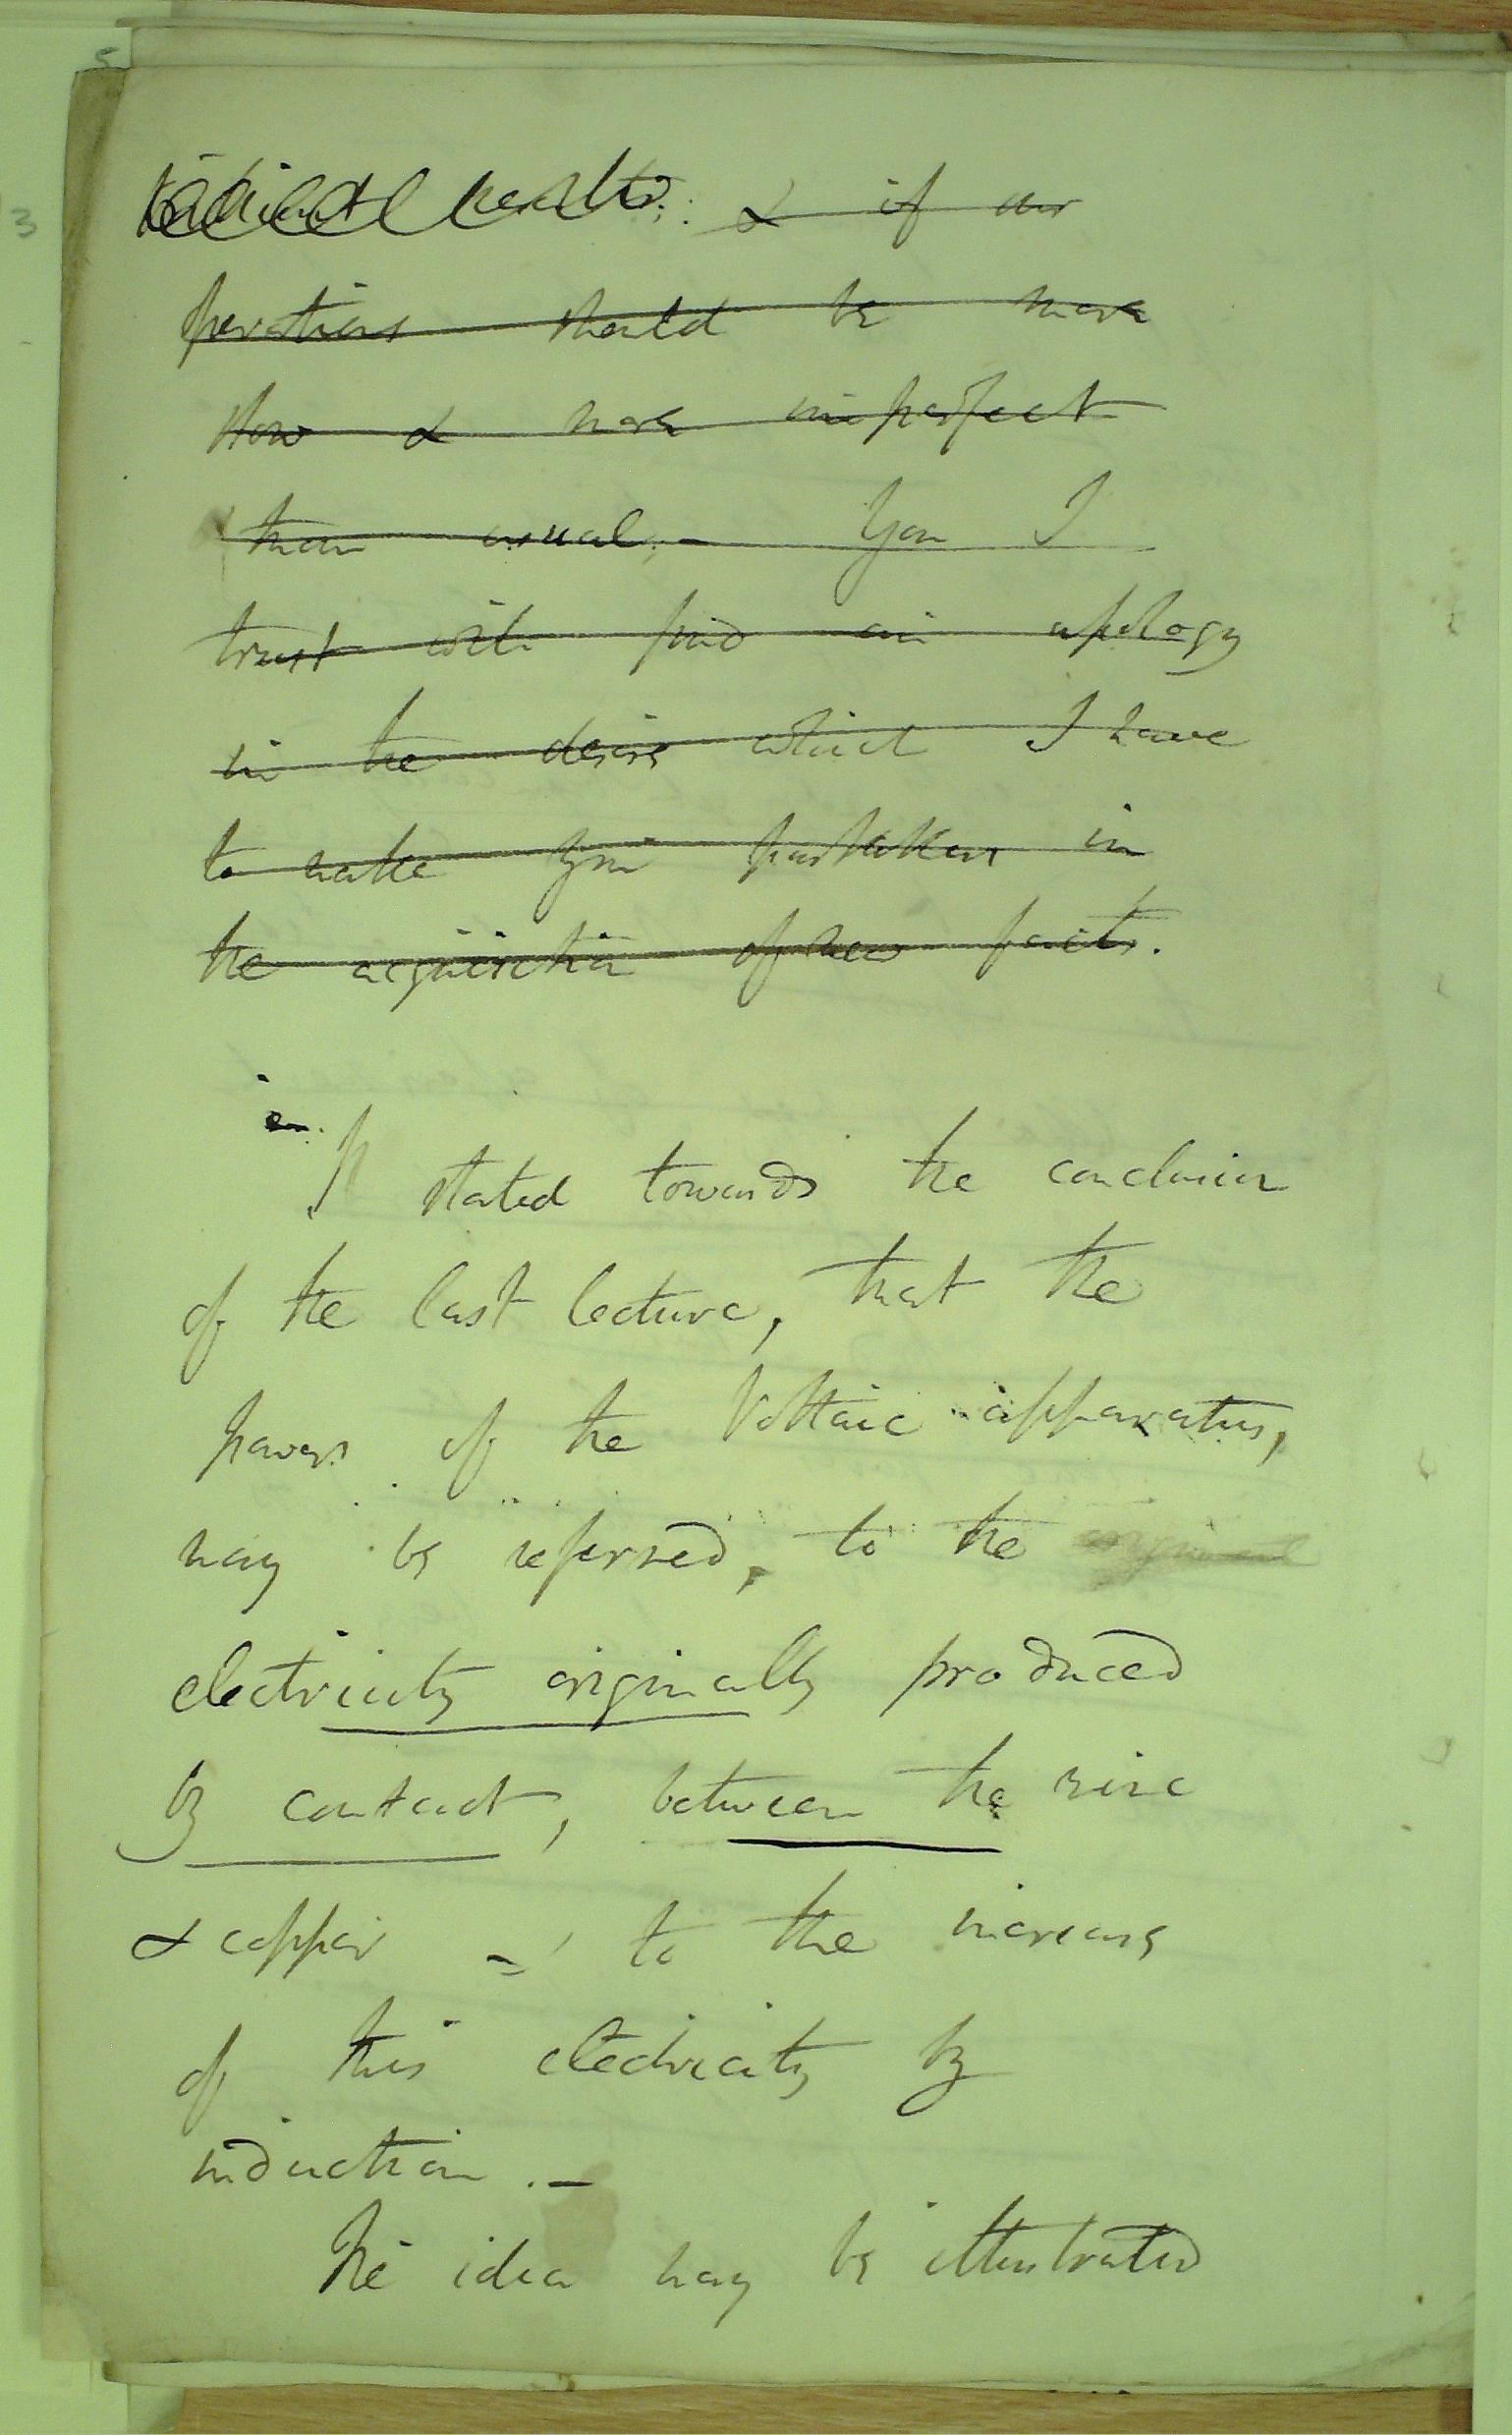 results; & if our
operations should be more
slow & more imperfect
than usual; – You I
trust will find an apology
in the desire which I have
to make you partakers in
the acquisition of new facts.
I stated towards the conclusion
of the last lecture, that the
powers of the Voltaic apparatus,
may be referred, to the original
electricity originally produced
by contact, between the zinc
& copper = to the increase
of this electricity by
induction. –
The idea may be illustrated